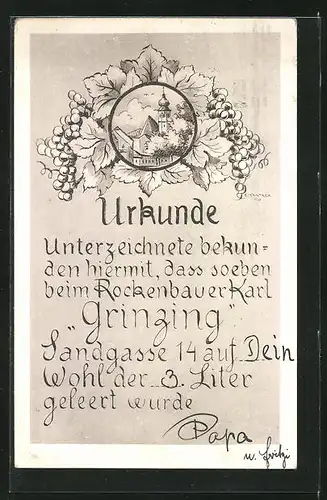 Urkunde
Unterzeichnete bekun=
den hiermit, dass soeben
beim Rockenbauer Karl
"Grinzing"
Sandgasse 14 auf Dein
Wohl der 3. Liter
geleert wurde
Papa
u. Fritzi